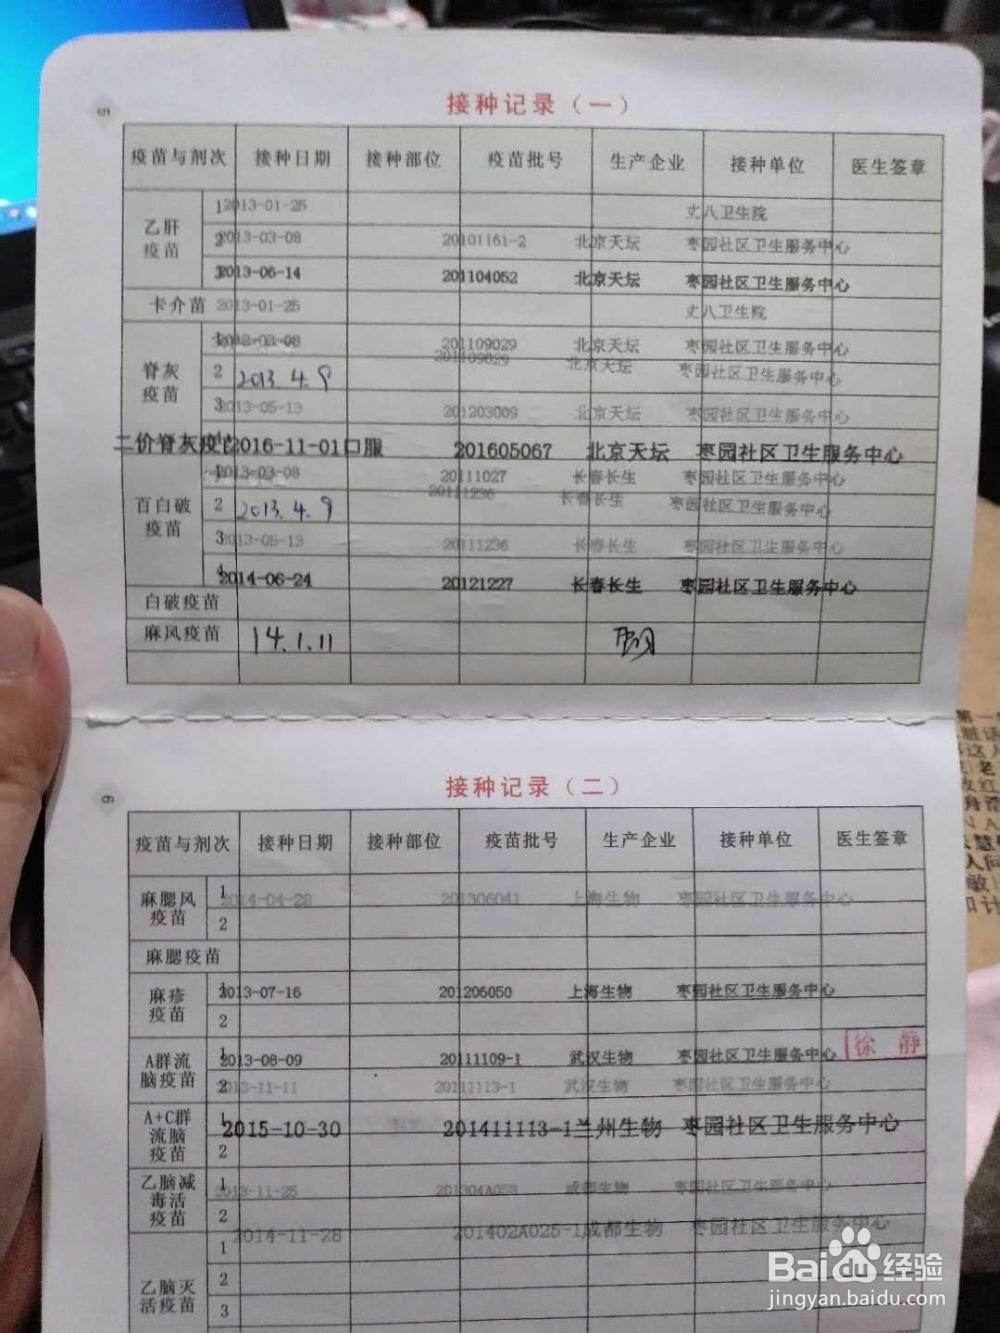 接种记录（一）
疫苗与剂次 接种日期 接种部位 疫苗批号 生产企业 接种单位 医生签章
乙肝疫苗 1 2013-01-25 丈八卫生院
2 2013-03-08 20101161-2 北京天坛 枣园社区卫生服务中心
3 2013-06-14 201104052 北京天坛 枣园社区卫生服务中心
卡介苗 2013-01-25 丈八卫生院
脊灰疫苗 1 2013-03-08 201109029 北京天坛 枣园社区卫生服务中心
2 2013.4.9 201109029 北京天坛 枣园社区卫生服务中心
3 2013-05-13 201203009 北京天坛 枣园社区卫生服务中心
二价脊灰疫苗 2016-11-01 口服 201605067 北京天坛 枣园社区卫生服务中心
百白破疫苗 1 2013-03-08 20111027 长春长生 枣园社区卫生服务中心
2 2013.4.9 20111236 长春长生 枣园社区卫生服务中心
3 2013-05-13 20111236 长春长生 枣园社区卫生服务中心
4 2014-06-24 20121227 长春长生 枣园社区卫生服务中心
白破疫苗
麻风疫苗 14.1.11
接种记录（二）
疫苗与剂次 接种日期 接种部位 疫苗批号 生产企业 接种单位 医生签章
麻腮风疫苗 1 2014-04-28 201306041 上海生物 枣园社区卫生服务中心
2
麻腮疫苗
麻疹疫苗 1 2013-07-16 201206050 上海生物 枣园社区卫生服务中心
2
A群流脑疫苗 1 2013-08-09 20111109-1 武汉生物 枣园社区卫生服务中心 徐静
2 2013-11-11 20111113-1 武汉生物 枣园社区卫生服务中心
A+C群流脑疫苗 1 2015-10-30 201411113-1 兰州生物 枣园社区卫生服务中心
2
乙脑减毒活疫苗 1 2013-11-25 201304A053 成都生物 枣园社区卫生服务中心
2 2014-11-28 201402A025-1 成都生物 枣园社区卫生服务中心
乙脑灭活疫苗 1
2
3
Baidu经验
jingyan.baidu.com